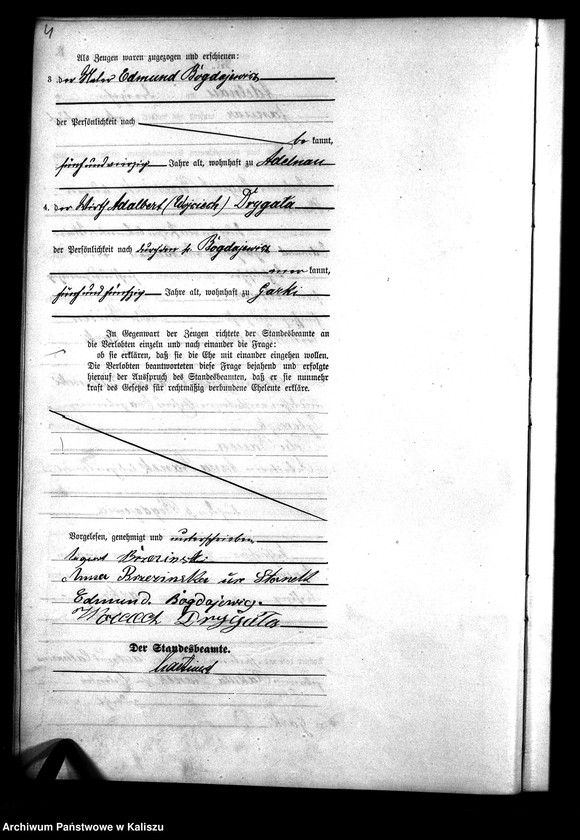 4
Als Zeugen waren zugezogen und erschienen:
3. der Maler Edmund Bogdajewicz
der Persönlichkeit nach
be kannt,
fünfundvierzig Jahre alt, wohnhaft zu Adelnau
4. der Wirth Adalbert (Wojciech) Drygała
der Persönlichkeit nach durch den p. Bogdajewicz
aner kannt,
fünfundfünfzig Jahre alt, wohnhaft zu Garki
In Gegenwart der Zeugen richtete der Standesbeamte an
die Verlobten einzeln und nach einander die Frage:
ob sie erklären, daß sie die Ehe mit einander eingehen wollen.
Die Verlobten beantworteten diese Frage bejahend und erfolgte
hierauf der Ausspruch des Standesbeamten, daß er sie nunmehr
kraft des Gesetzes für rechtmäßig verbundene Eheleute erkläre.
Vorgelesen, genehmigt und unterschrieben.
Brzezinski
Anna Brzezinska
Edmund. Bogdajewicz.
Drygała
Der Standesbeamte.
Archiwum Państwowe w Kaliszu